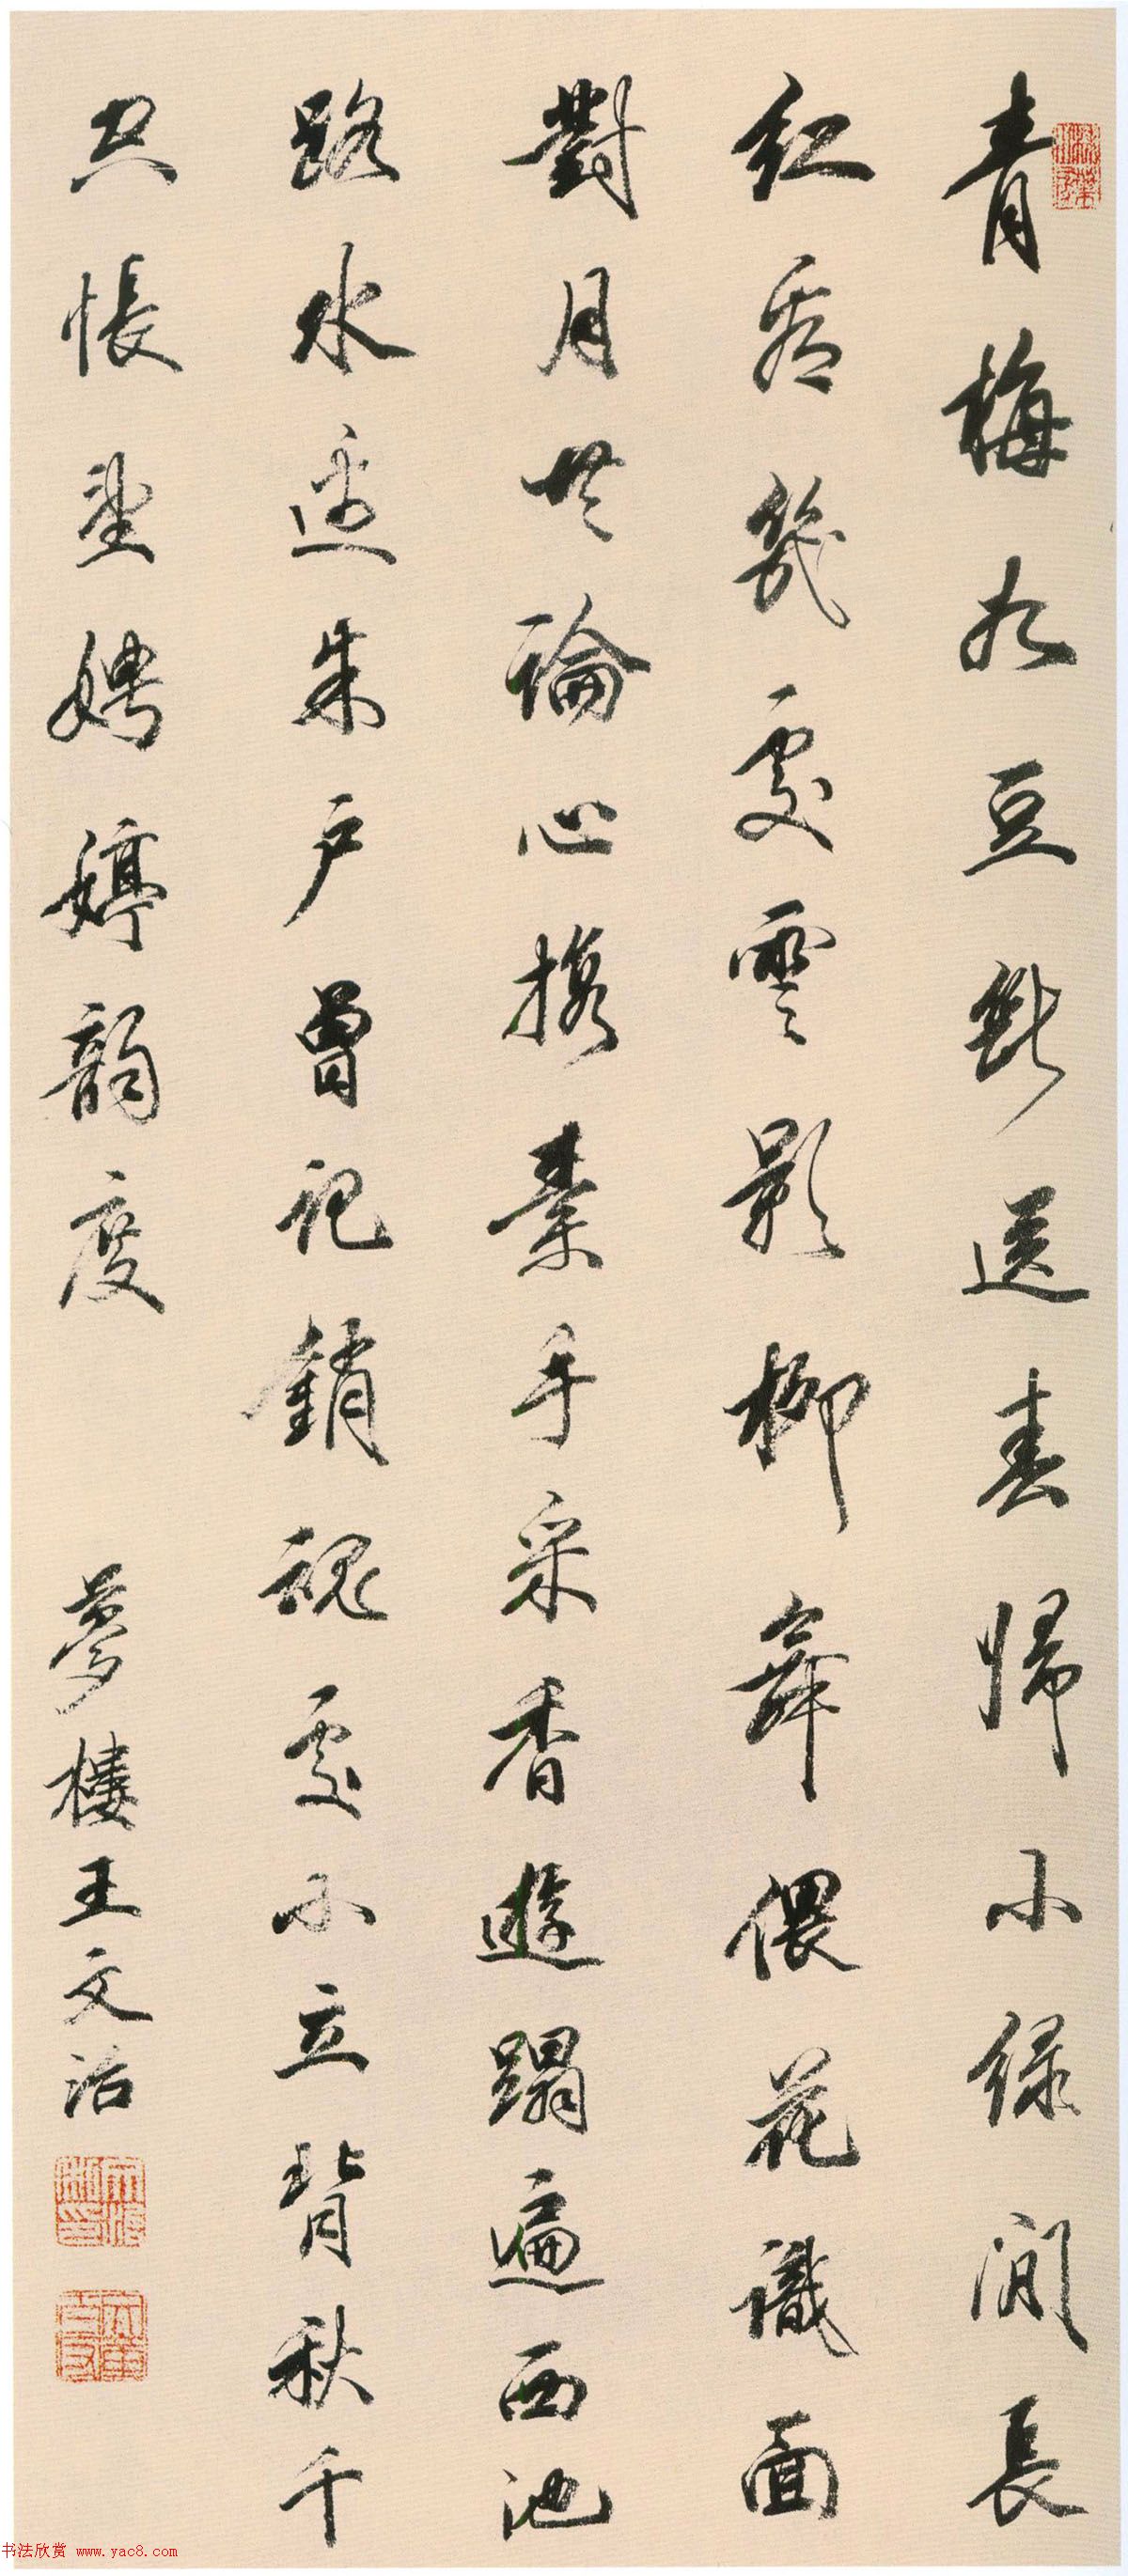 青梅如豆斷送春歸小綠間長
紅看幾處雲影柳舞偎花識面
對月共論心携素手采香遊蹋遍西池
路水邊朱户曾記銷魂處小立背秋千
空悵望娉婷韻度
夢樓王文治
书法欣赏 www.yac8.com